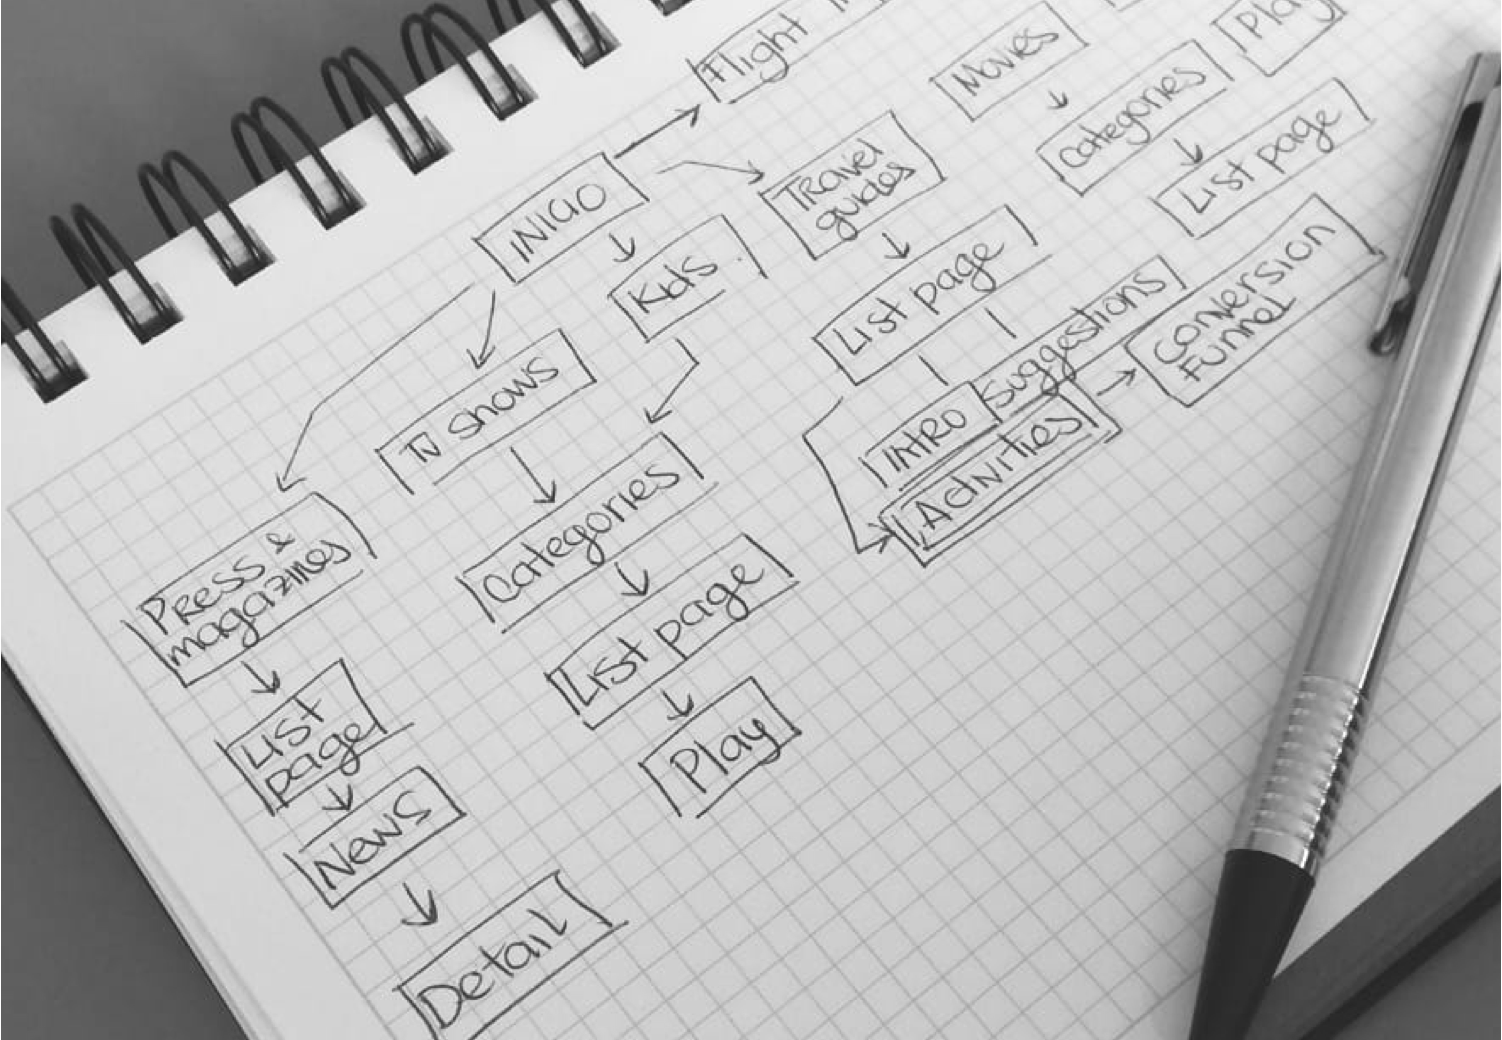 Flight
Movies
Categories
List page
INICIO
Travel
guides
Kids
List page
TV shows
INTRO
Suggestions
Activities
Conversion
Funnel
Press &
magazines
Categories
List page
Play
List
page
News
Detail